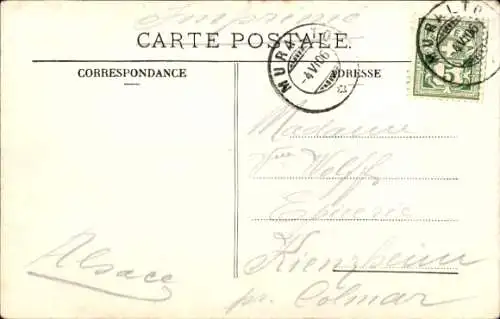 Imprimé
CARTE POSTALE.
MURALTO
-4 VI 06
MURALTO
5
CORRESPONDANCE
ADRESSE
Madame
Vve Wolff
Epicerie
Kienzheim
pr. Colmar
Alsace